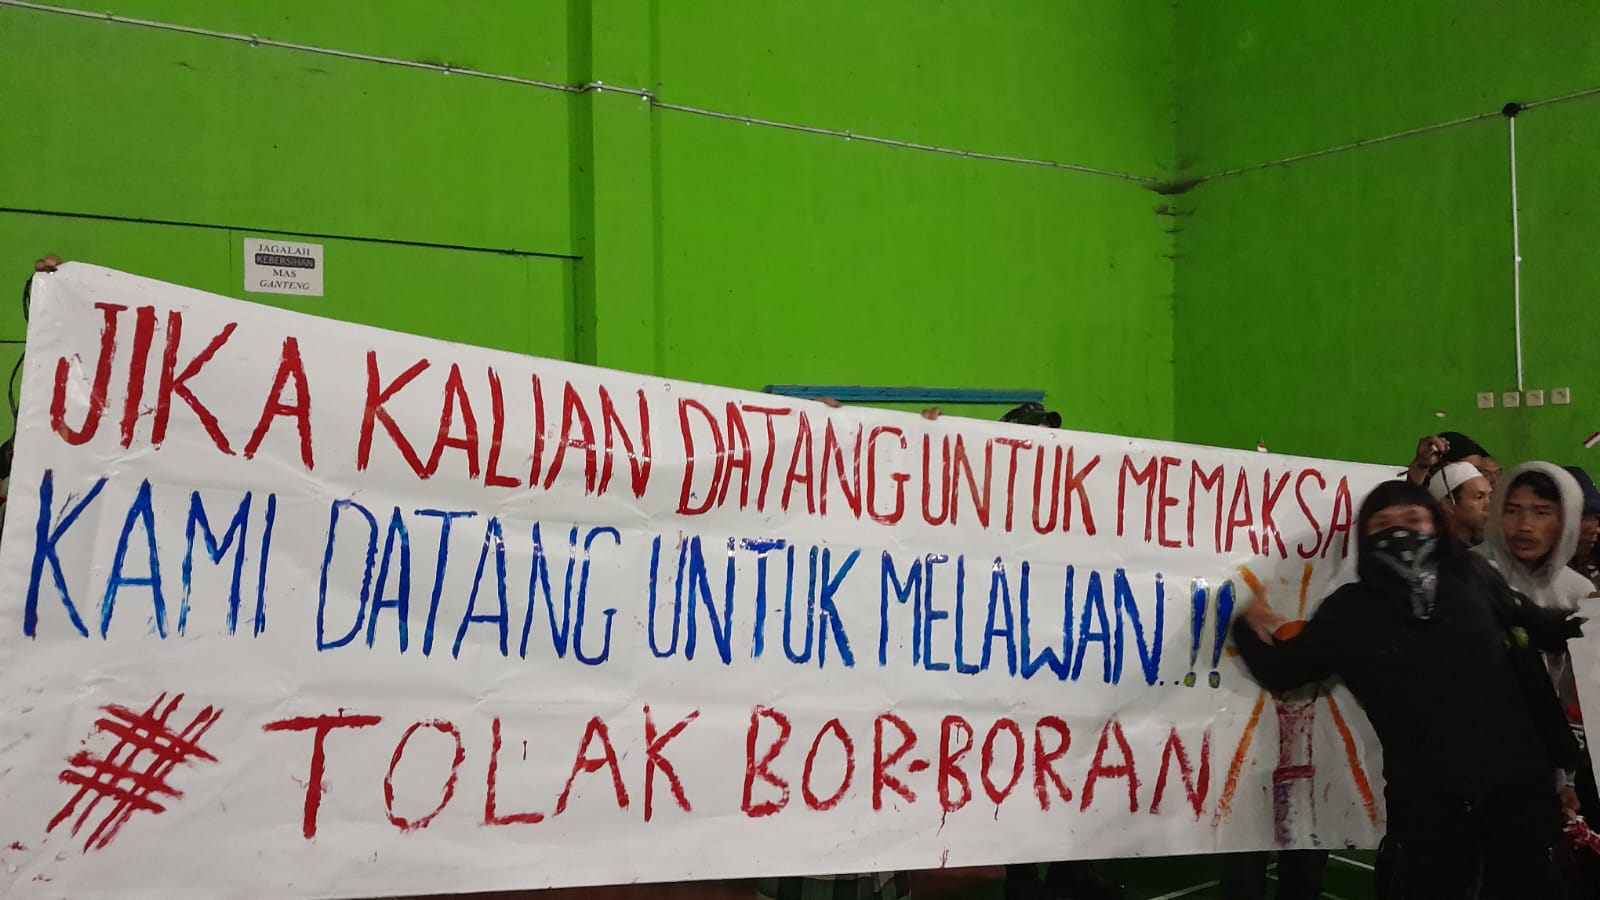 JAGALAH
KEBERSIHAN
MAS
GANTENG
JIKA KALIAN DATANG UNTUK MEMAKSA
KAMI DATANG UNTUK MELAWAN..!!
# TOLAK BOR-BORAN